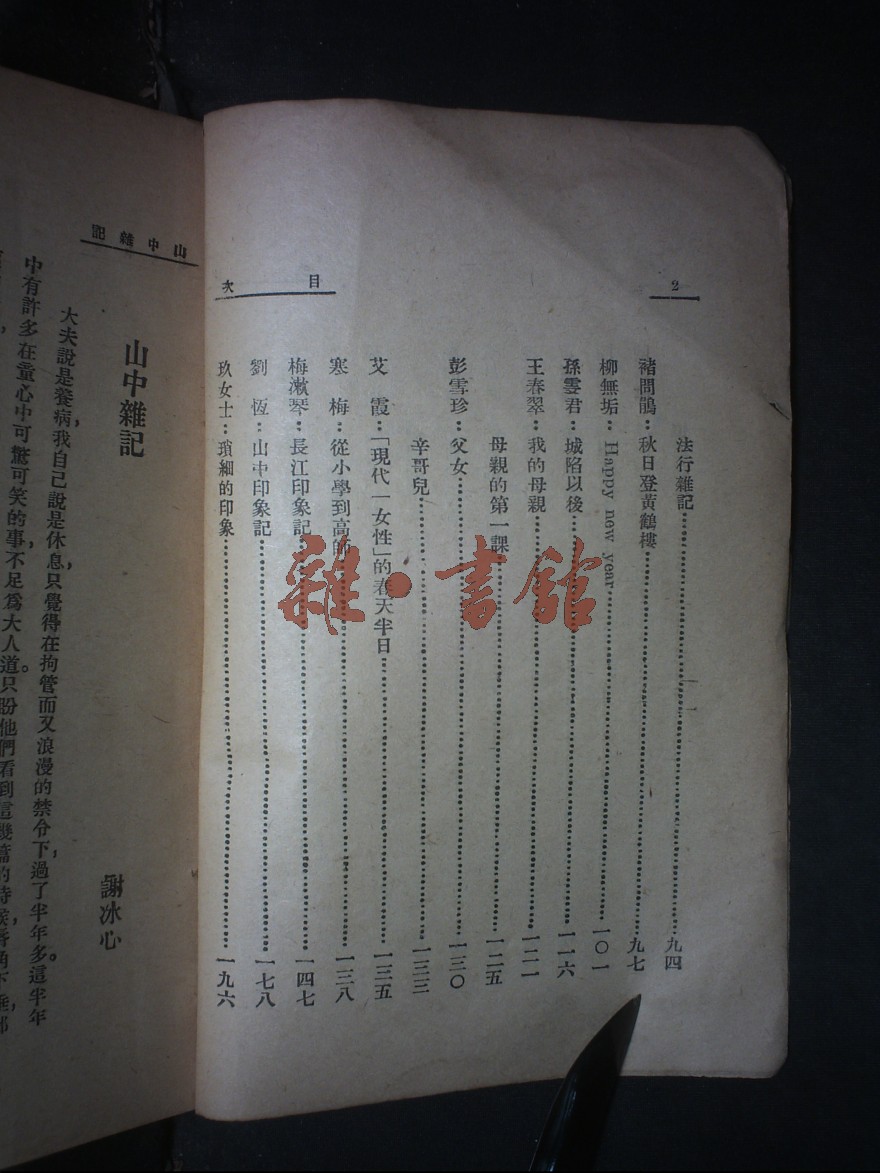 2
目次
法行雜記 九四
褚問鵑:秋日登黃鶴樓 九七
柳無垢:Happy new year 一〇一
孫雯君:城陷以後 一一六
王春翠:我的母親 一二一
母親的第一課 一二五
彭雪珍:父女 一三〇
辛哥兒 一三三
艾霞:「現代一女性」的春天半日 一三五
寒梅:從小學到高師 一三八
梅漱琴:長江印象記 一四七
劉恆:山中印象記 一七八
玖女士:瑣細的印象 一九六
山中雜記
山中雜記
謝冰心
大夫說是養病,我自己說是休息,只覺得在拘管而又浪漫的禁令下,過了半年多。這半年
中有許多在童心中可驚可笑的事,不足爲大人道。只盼他們看到這幾篇的時候,唇角下垂,
雜·書館